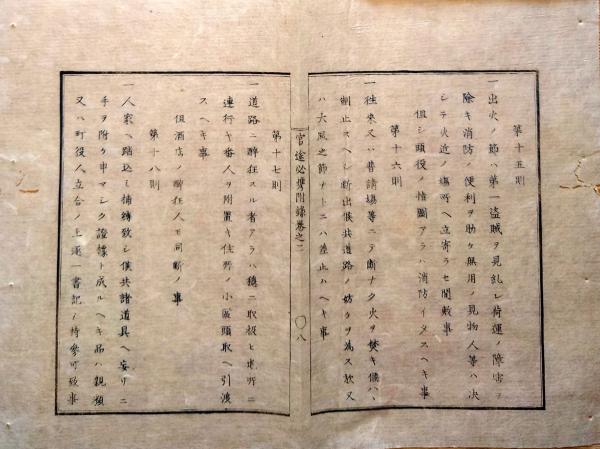 第十五則
一出火ノ節ハ第一盗賊ヲ見乱シ荷運ノ障害ヲ
除キ消防ノ便利ヲ助ケ無用ノ見物人等ハ决
シテ火近ノ場所ヘ立寄ラセ間敷事
但シ頭役ノ指圖アラハ消防イタスヘキ事
第十六則
一往來又ハ普請場等ニテ斷ナク火ヲ焚キ候ハヽ
制止スヘシ断出候共道路ノ妨ケヲ為ス歟又
ハ大風之節ナトニハ差止ハヘキ事
官途必携附錄巻之二
〇八
第十七則
一道路ニ醉狂スル者アラハ穏ニ取扱ヒ
連行キ番人ヲ附置キ住所ノ小區頭取ヘ引渡
スヘキ事
但酒店ノ醉狂人モ同斷ノ事
第十八則
一人家ヘ踏込ミ捕縛致シ候共諸道具ヘ妄リニ
手ヲ附ケ申マシク證據ト成ルヘキ品ハ親類
又ハ町役人立合ノ上逐一書記シ持參可致事